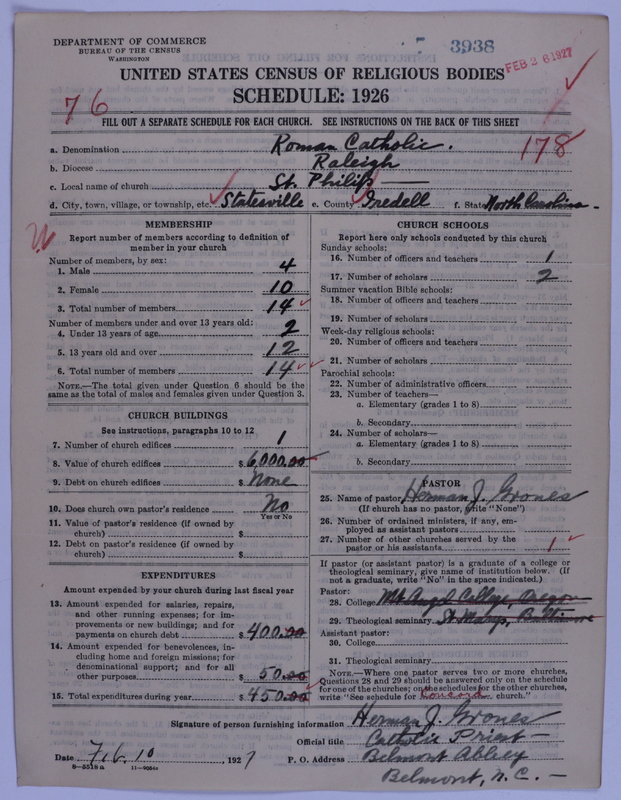 DEPARTMENT OF COMMERCE
BUREAU OF THE CENSUS
WASHINGTON
3938
FEB 28 1927
UNITED STATES CENSUS OF RELIGIOUS BODIES
SCHEDULE: 1926
76
FILL OUT A SEPARATE SCHEDULE FOR EACH CHURCH. SEE INSTRUCTIONS ON THE BACK OF THIS SHEET
178
a. Denomination Roman Catholic.
b. Diocese Raleigh
c. Local name of church St. Philip
d. City, town, village, or township, etc. Statesville e. County Iredell f. State North Carolina
MEMBERSHIP
Report number of members according to definition of
member in your church
Number of members, by sex:
1. Male 4
2. Female 10
3. Total number of members 14
Number of members under and over 13 years old:
4. Under 13 years of age 2
5. 13 years old and over 12
6. Total number of members 14
NOTE.—The total given under Question 6 should be the
same as the total of males and females given under Question 3.
CHURCH BUILDINGS
See instructions, paragraphs 10 to 12
7. Number of church edifices 1
8. Value of church edifices $ 6,000.00
9. Debt on church edifices $ None
10. Does church own pastor's residence No
Yes or No
11. Value of pastor's residence (if owned by
church) $
12. Debt on pastor's residence (if owned by
church) $
EXPENDITURES
Amount expended by your church during last fiscal year
13. Amount expended for salaries, repairs,
and other running expenses; for im-
provements or new buildings; and for
payments on church debt $ 400.00
14. Amount expended for benevolences, in-
cluding home and foreign missions; for
denominational support; and for all
other purposes $ 50.00
15. Total expenditures during year $ 450.00
CHURCH SCHOOLS
Report here only schools conducted by this church
Sunday schools:
16. Number of officers and teachers 1
17. Number of scholars 2
Summer vacation Bible schools:
18. Number of officers and teachers
19. Number of scholars
Week-day religious schools:
20. Number of officers and teachers
21. Number of scholars
Parochial schools:
22. Number of administrative officers
23. Number of teachers—
a. Elementary (grades 1 to 8)
b. Secondary
24. Number of scholars—
a. Elementary (grades 1 to 8)
b. Secondary
PASTOR
25. Name of pastor Herman J. Grones
(If church has no pastor, write "None")
26. Number of ordained ministers, if any, em-
ployed as assistant pastors
27. Number of other churches served by the
pastor or his assistants 1
If pastor (or assistant pastor) is a graduate of a college or
theological seminary, give name of institution below. (If
not a graduate, write "No" in the space indicated.)
Pastor:
28. College Mt. Angel College, Oregon
29. Theological seminary St. Mary's, Baltimore
Assistant pastor:
30. College
31. Theological seminary
NOTE.—Where one pastor serves two or more churches,
Questions 28 and 29 should be answered only on the schedule
for one of the churches; on the schedules for the other churches,
write "See schedule for Concord church."
Signature of person furnishing information Herman J. Grones
Official title Catholic Priest
Date Feb. 10 1927 P. O. Address Belmont Abbey
Belmont, N. C.
8-5518a